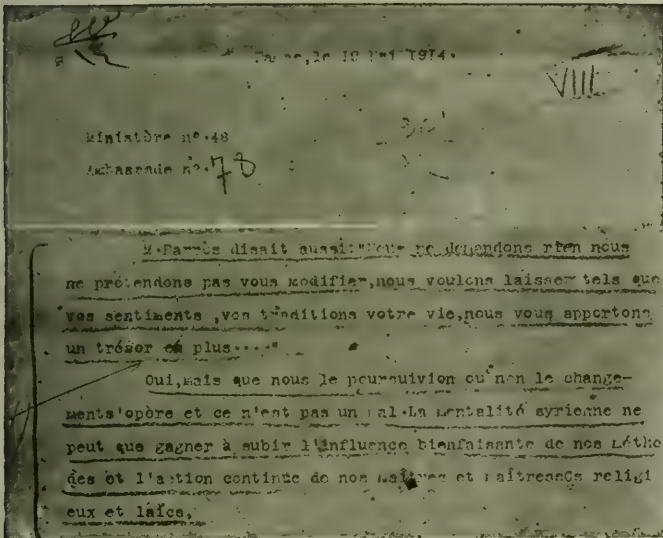 le 19 Mai 1914.
VIII
Ministère nº.48
Ambassade nº.78
M.Barrès disait aussi:"Nous ne demandons rien nous
ne prétendons pas vous modifier,nous voulons laisser tels que
vos sentiments ,vos traditions votre vie,nous vous apportons
un trésor en plus...."
Oui,mais que nous le poursuivion ou non le change-
ments'opère et ce n'est pas un mal.La mentalité syrienne ne
peut que gagner à subir l'influence bienfaisante de nos Métho
des et l'action continue de nos maîtres et maîtresses religi
eux et laïcs,